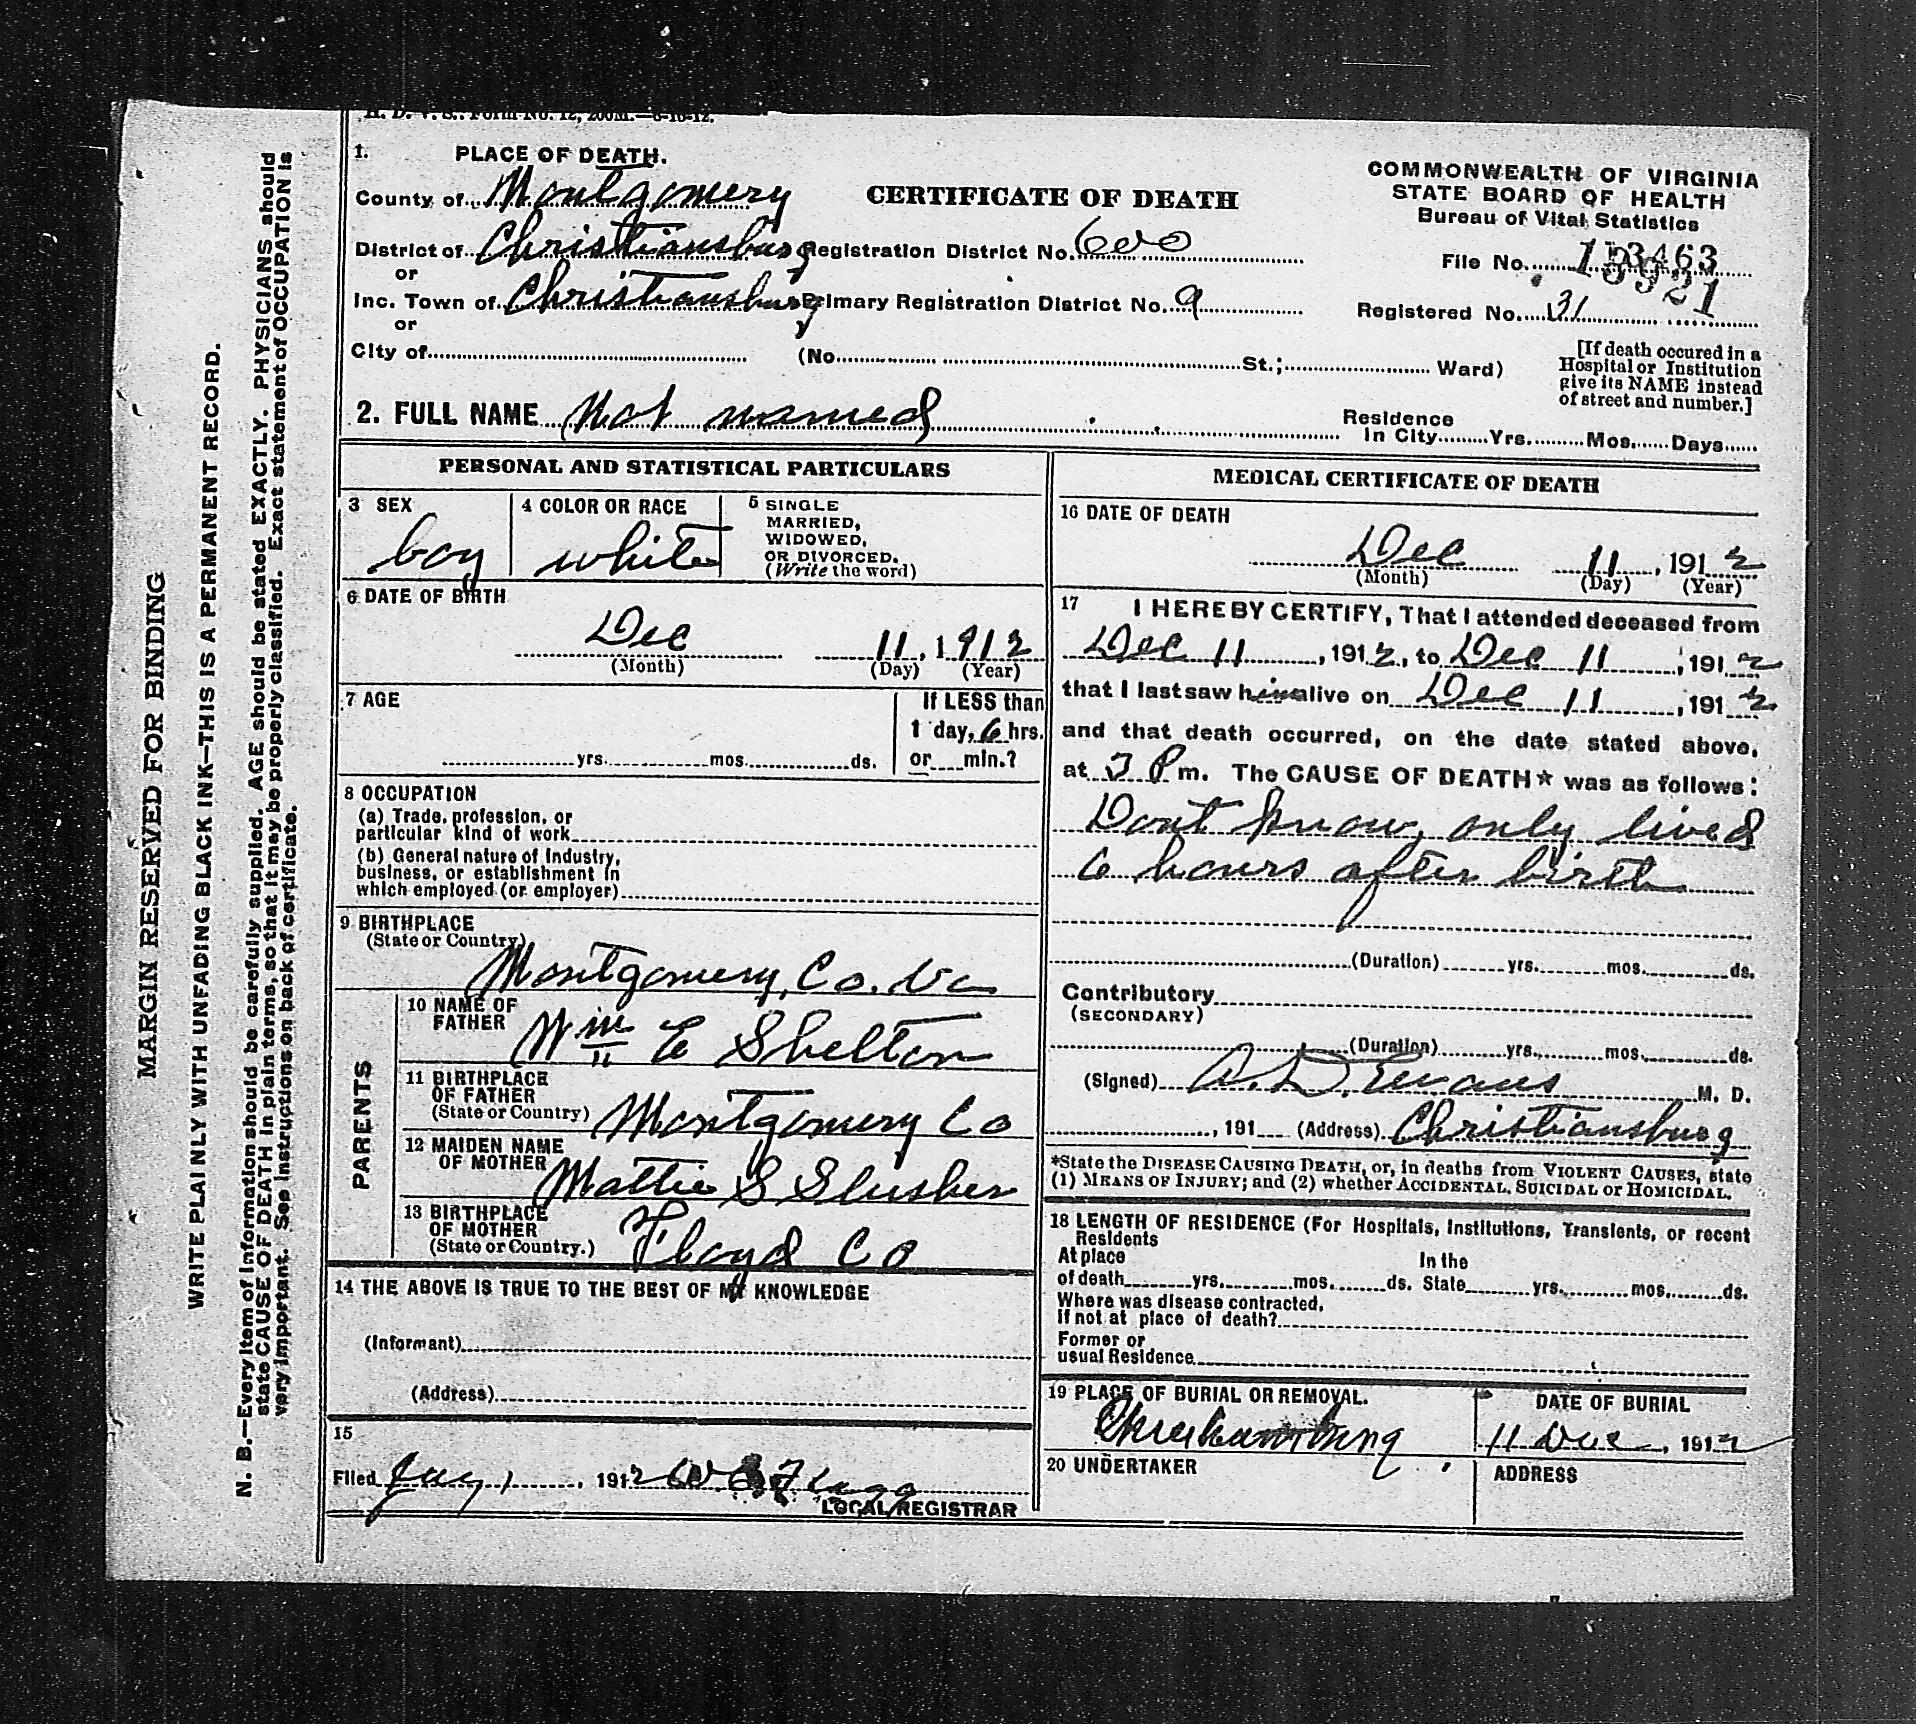 H. D. V. S.. Form No. 12, 200M.—6-10-12.
1. PLACE OF DEATH.
County of Montgomery
District of Christiansburg
or
Inc. Town of Christiansburg
or
City of
CERTIFICATE OF DEATH
Registration District No. 600
Primary Registration District No. 9
(No. St.; Ward)
COMMONWEALTH OF VIRGINIA
STATE BOARD OF HEALTH
Bureau of Vital Statistics
File No.
Registered No. 31
[If death occured in a
Hospital or Institution
give its NAME instead
of street and number.]
2. FULL NAME Not named
Residence
In City Yrs. Mos. Days
PERSONAL AND STATISTICAL PARTICULARS
3 SEX
boy
4 COLOR OR RACE
white
5 SINGLE
MARRIED,
WIDOWED,
OR DIVORCED.
(Write the word)
6 DATE OF BIRTH
Dec 11, 1912
(Month) (Day) (Year)
7 AGE
yrs. mos. ds.
If LESS than
1 day, 6 hrs.
or min.?
8 OCCUPATION
(a) Trade, profession, or
particular kind of work
(b) General nature of Industry,
business, or establishment in
which employed (or employer)
9 BIRTHPLACE
(State or Country)
Montgomery, Co. Va
PARENTS
10 NAME OF
FATHER Wm E Shelton
11 BIRTHPLACE
OF FATHER
(State or Country) Montgomery Co
12 MAIDEN NAME
OF MOTHER Mattie S Slusher
13 BIRTHPLACE
OF MOTHER
(State or Country.) Floyd Co
14 THE ABOVE IS TRUE TO THE BEST OF MY KNOWLEDGE
(Informant)
(Address)
15
Filed 1, 1912
LOCAL REGISTRAR
MEDICAL CERTIFICATE OF DEATH
16 DATE OF DEATH
Dec 11, 1912
(Month) (Day) (Year)
17 I HEREBY CERTIFY, That I attended deceased from
Dec 11, 1912, to Dec 11, 1912
that I last saw him alive on Dec 11, 1912
and that death occurred, on the date stated above,
at 3 P m. The CAUSE OF DEATH* was as follows:
Dont know, only lived
6 hours after birth
(Duration) yrs. mos. ds.
Contributory
(SECONDARY)
(Duration) yrs. mos. ds.
(Signed) A. D. Evans M. D.
, 191 (Address) Christiansburg
*State the DISEASE CAUSING DEATH, or, in deaths from VIOLENT CAUSES, state
(1) MEANS OF INJURY; and (2) whether ACCIDENTAL, SUICIDAL or HOMICIDAL.
18 LENGTH OF RESIDENCE (For Hospitals, Institutions, Transients, or recent
Residents
At place In the
of death yrs. mos. ds. State yrs. mos. ds.
Where was disease contracted,
if not at place of death?
Former or
usual Residence
19 PLACE OF BURIAL OR REMOVAL.
Christiansburg
DATE OF BURIAL
11 Dec, 1912
20 UNDERTAKER
ADDRESS
MARGIN RESERVED FOR BINDING
WRITE PLAINLY WITH UNFADING BLACK INK—THIS IS A PERMANENT RECORD.
N. B.—Every item of information should be carefully supplied. AGE should be stated EXACTLY. PHYSICIANS should
state CAUSE OF DEATH in plain terms, so that it may be properly classified. Exact statement of OCCUPATION is
very important. See instructions on back of certificate.